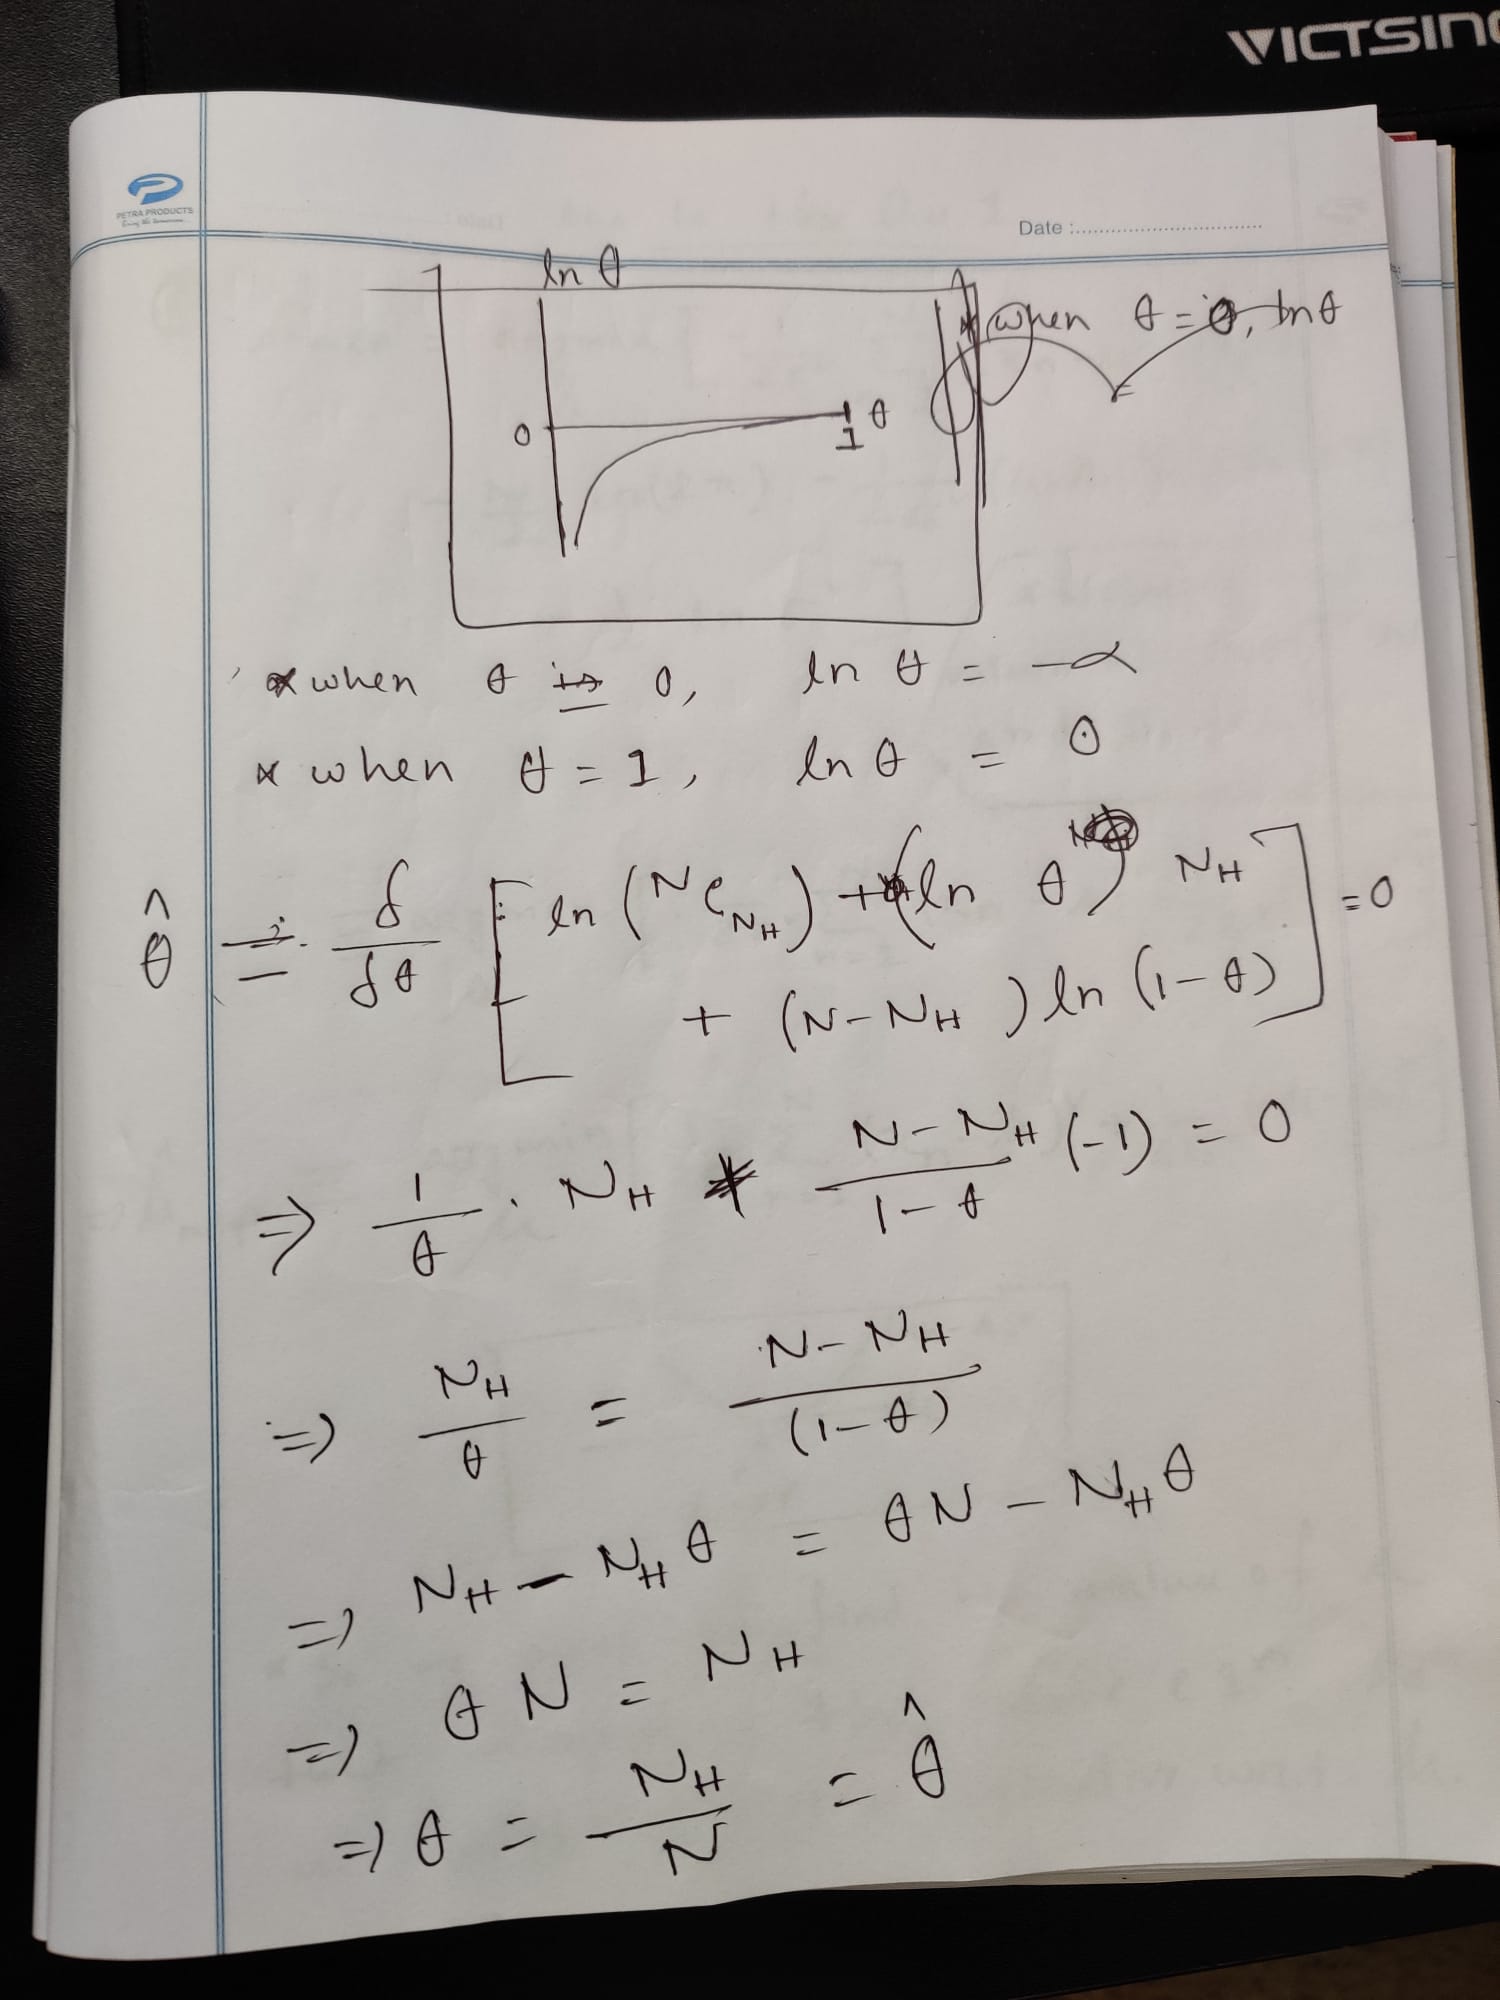 VICTSING
PETRA PRODUCTS
Date :
ln θ
when θ = 0, ln θ
=
0
θ
1
* when θ is 0, ln θ = -∝
* when θ = 1, ln θ = 0
θ̂ = δ/δθ [ ln (ᴺC_{N_H}) + (ln θ) N_H
+ (N - N_H) ln (1-θ) ] = 0
⇒ 1/θ . N_H + N-N_H/1-θ (-1) = 0
⇒ N_H/θ = N-N_H/(1-θ)
⇒ N_H - N_H θ = θN - N_H θ
⇒ θN = N_H
⇒ θ = N_H/N = θ̂